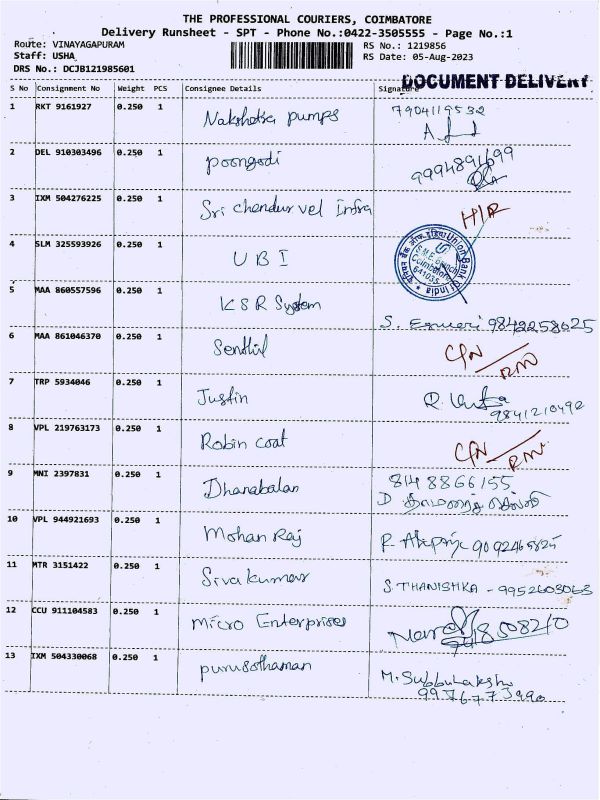 THE PROFESSIONAL COURIERS, COIMBATORE
Delivery Runsheet - SPT - Phone No.:0422-3505555 - Page No.:1
Route: VINAYAGAPURAM RS No.: 1219856
Staff: USHA RS Date: 05-Aug-2023
DRS No.: DCJB121985601
DOCUMENT DELIVERY
S No Consignment No Weight PCS Consignee Details Signature
1 RKT 9161927 0.250 1 Nakshatra pumps 7904119532
2 DEL 910303496 0.250 1 poongodi
3 IXM 504276225 0.250 1 Sri chendur vel Infra H/R
4 SLM 325593926 0.250 1 U B I
Union Bank of India
Coimbatore
641035
5 MAA 860557596 0.250 1 KSR System S. 9842258625
6 MAA 861046370 0.250 1 Senthil
7 TRP 5934046 0.250 1 Justin R. 9841210492
8 VPL 219763173 0.250 1 Robin coat
9 MNI 2397831 0.250 1 Dhanabalan 8148866155
D
10 VPL 944921693 0.250 1 Mohan Raj R
11 MTR 3151422 0.250 1 Sivakumar S.THANISHKA - 9952603063
12 CCU 911104583 0.250 1 Micro Enterprises
13 IXM 504330068 0.250 1 purusothaman M. Subbulakshmi